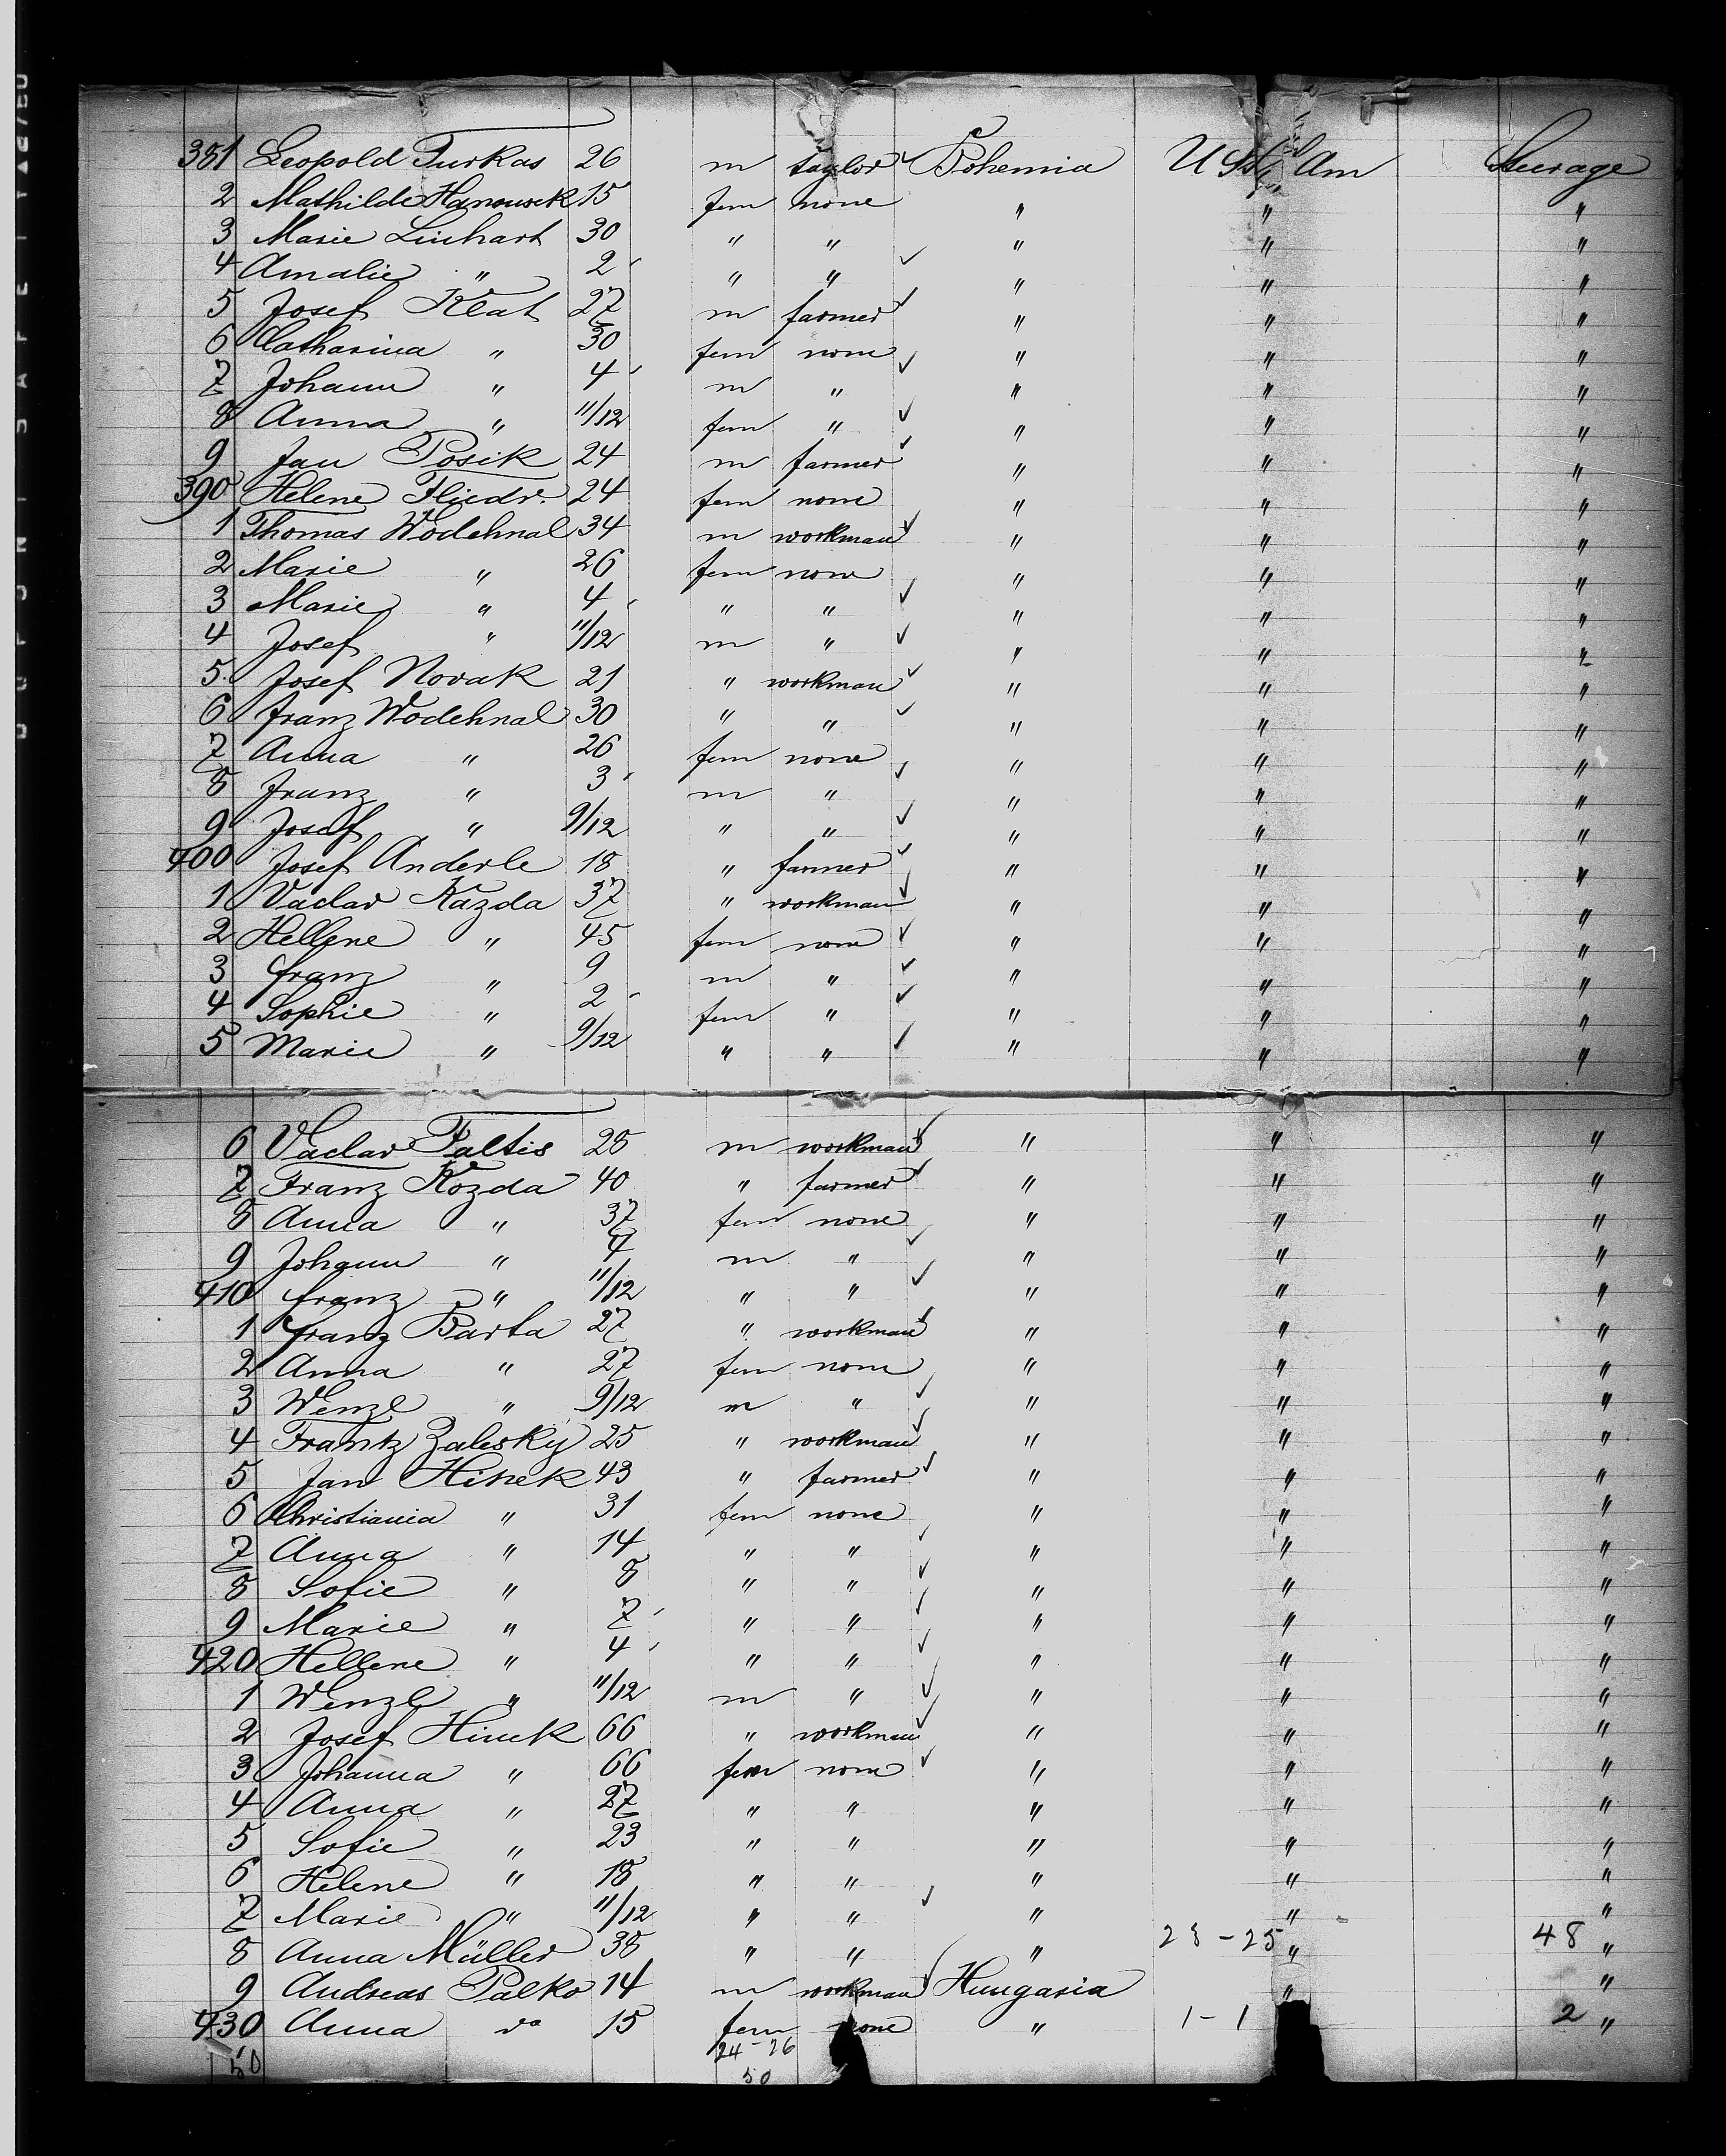 381 Leopold Turkas 26 m taylor Bohemia U St Am Steerage
2 Mathilde Hanousek 15 fem none " " "
3 Marie Linhart 30 " " " " "
4 Amalie " 2 " " " " "
5 Josef Klat 27 m farmer " " "
6 Catharina " 30 fem none " " "
7 Johann " 4 m " " " "
8 Anna " 11/12 fem " " " "
9 Jan Posik 24 m farmer " " "
390 Helene Fliedr. 24 fem none " " "
1 Thomas Wodehnal 34 m workman " " "
2 Marie " 26 fem none " " "
3 Marie " 4 " " " " "
4 Josef " 11/12 m " " " "
5 Josef Novak 21 " workman " " "
6 Franz Wodehnal 30 " " " " "
7 Anna " 26 fem none " " "
8 Franz " 3 m " " " "
9 Josef " 9/12 " " " " "
400 Josef Anderle 18 " farmer " " "
1 Vaclav Kazda 37 " workman " " "
2 Hellene " 45 fem none " " "
3 Franz " 9 m " " " "
4 Sophie " 2 fem " " " "
5 Marie " 9/12 " " " " "
6 Vaclav Faltis 28 m workman " " "
7 Franz Kozda 40 " farmer " " "
8 Anna " 37 fem none " " "
9 Johann " 4 m " " " "
410 Franz " 11/12 " " " " "
1 Franz Barta 27 " workman " " "
2 Anna " 27 fem none " " "
3 Wenzl " 9/12 m " " " "
4 Frantz Zalesky 25 " workman " " "
5 Jan Hinek 43 " farmer " " "
6 Christiania " 31 fem none " " "
7 Anna " 14 " " " " "
8 Sofie " 8 " " " " "
9 Marie " 7 " " " " "
420 Hellene " 4 " " " " "
1 Wenzl " 11/12 m " " " "
2 Josef Hinek 66 " workman " " "
3 Johanna " 66 fem none " " "
4 Anna " 27 " " " " "
5 Sofie " 23 " " " " "
6 Helene " 18 " " " " "
7 Marie " 11/12 " " " " "
8 Anna Müller 38 " " " 23-25 " 48 "
9 Andreas Palko 14 m workman Hungaria " "
430 Anna do 15 fem none " 1-1 2 "
50 24-26
50